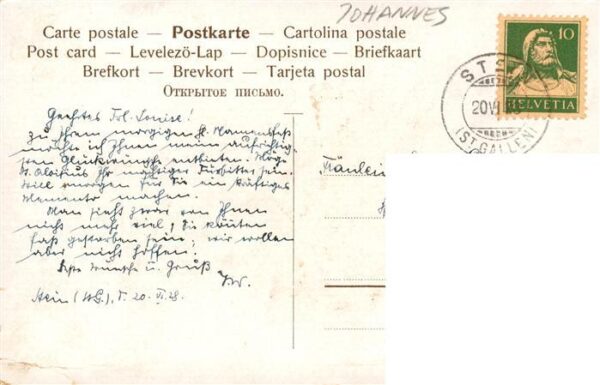 JOHANNES
Carte postale — Postkarte — Cartolina postale
Post card — Levelező-Lap — Dopisnice — Briefkaart
Brefkort — Brevkort — Tarjeta postal
Открытое письмо.
10
HELVETIA
ST
20 VI
(ST. GALLEN)
Geehrtes Frl. Louise!
Zu Ihrem morgigen hl. Namensfest
möchte ich Ihnen meine aufrichtig-
sten Glückwünsche entbieten. Möge
St. Aloisius Ihr mächtiger Fürbitter sein.
Will morgen für Sie ein kräftiges
Memento machen.
Man sieht zwar von Ihnen
nicht mehr viel, Sie könnten
fast gestorben sein, wir wollen
aber nicht hoffen.
Wünsche u. Gruß
Stein (St. G.), 20. VI. 28.
Fräulein